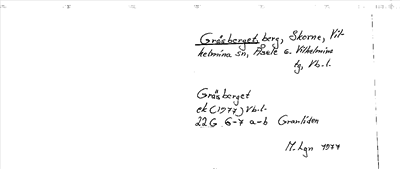 Gråsberget, berg, Skorne, Vil-
helmina sn, Åsele o. Vilhelmina
tg, Vb.l.
Gråsberget
ek (1977) Vb.l.
22G 6-7 a-b Granliden
M. Lgn 1977